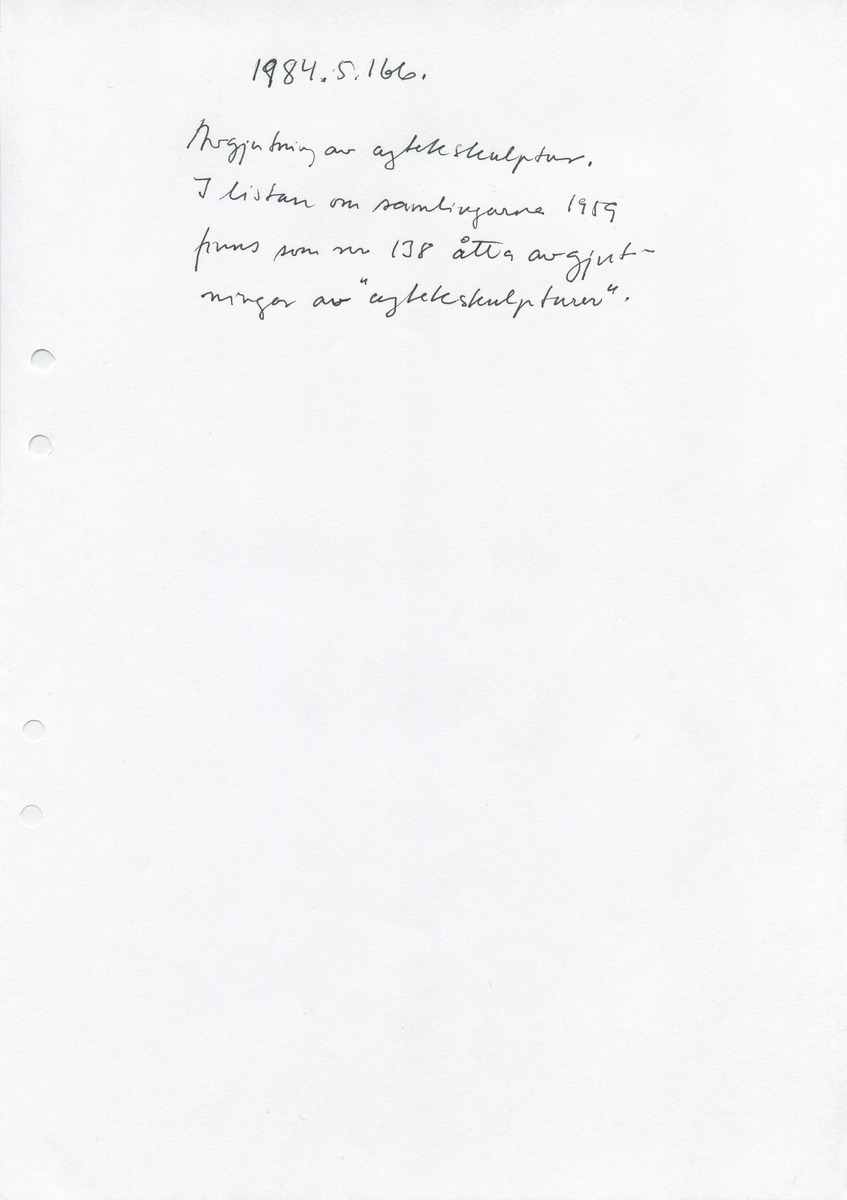 1984.5.166.
Avgjutning av aztekskulptur.
I listan om samlingarna 1959
finns som nr 138 åtta avgjut-
ningar av "aztekskulpturer".